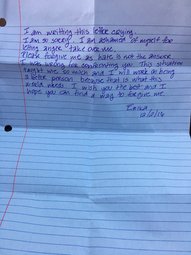 I am writing this letter crying.
I am so sorry. I am ashamed of myself for
letting anger take over me.
Please forgive me as hate is not the answer
I was wrong for confronting you. This situation
taught me so much and I will work on being
a better person because that is what this
world needs. I wish you the best and I
hope you can find a way to forgive me.
Erika
12/2/16